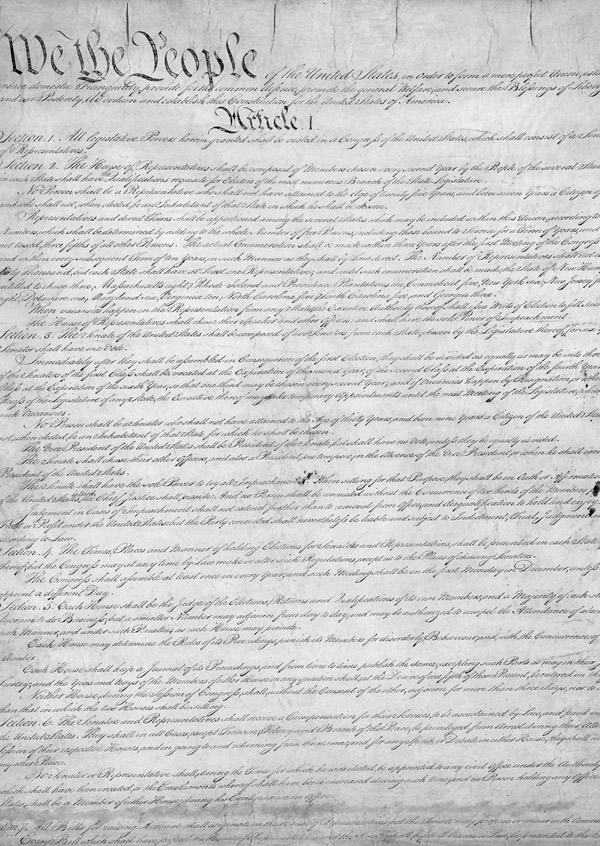 We the People of the United States, in Order to form a more perfect Union, estab
insure domestic Tranquility, provide for the common defence, promote the general Welfare, and secure the Blessings of Liberty
and our Posterity, do ordain and establish this Constitution for the United States of America.
Article. I.
Section. 1. All legislative Powers herein granted shall be vested in a Congress of the United States, which shall consist of a Sena
of Representatives.
Section. 2. The House of Representatives shall be composed of Members chosen every second Year by the People of the several States
in each State shall have Qualifications requisite for Electors of the most numerous Branch of the State Legislature.
No Person shall be a Representative who shall not have attained to the Age of twenty five Years, and been seven Years a Citizen of
and who shall not, when elected, be an Inhabitant of that State in which he shall be chosen.
Representatives and direct Taxes shall be apportioned among the several States which may be included within this Union, according to
Numbers, which shall be determined by adding to the whole Number of free Persons, including those bound to Service for a Term of Years, and
not taxed, three fifths of all other Persons. The actual Enumeration shall be made within three Years after the first Meeting of the Congress
and within every subsequent Term of ten Years, in such Manner as they shall by Law direct. The Number of Representatives shall not
thirty Thousand, but each State shall have at Least one Representative; and until such enumeration shall be made, the State of New Hamp
entitled to chuse three, Massachusetts eight, Rhode Island and Providence Plantations one, Connecticut five, New York six, New Jersey four
eight, Delaware one, Maryland six, Virginia ten, North Carolina five, South Carolina five, and Georgia three.
When vacancies happen in the Representation from any State, the Executive Authority thereof shall issue Writs of Election to fill such
The House of Representatives shall chuse their Speaker and other Officers; and shall have the sole Power of Impeachment.
Section. 3. The Senate of the United States shall be composed of two Senators from each State, chosen by the Legislature thereof, for six
Senator shall have one Vote.
Immediately after they shall be assembled in Consequence of the first Election, they shall be divided as equally as may be into three
of the Senators of the first Class shall be vacated at the Expiration of the second Year, of the second Class at the Expiration of the fourth Year,
Class at the Expiration of the sixth Year, so that one third may be chosen every second Year; and if Vacancies happen by Resignation, or otherwise
Recess of the Legislature of any State, the Executive thereof may make temporary Appointments until the next Meeting of the Legislature, which
such Vacancies.
No Person shall be a Senator who shall not have attained to the Age of thirty Years, and been nine Years a Citizen of the United States
not, when elected, be an Inhabitant of that State for which he shall be chosen.
The Vice President of the United States shall be President of the Senate, but shall have no Vote, unless they be equally divided.
The Senate shall chuse their other Officers, and also a President pro tempore, in the Absence of the Vice President, or when he shall
President of the United States.
The Senate shall have the sole Power to try all Impeachments. When sitting for that Purpose, they shall be on Oath or Affirmation
of the United States is tried, the Chief Justice shall preside: And no Person shall be convicted without the Concurrence of two thirds of the Members
Judgment in Cases of Impeachment shall not extend further than to removal from Office, and disqualification to hold and enjoy
Trust or Profit under the United States: but the Party convicted shall nevertheless be liable and subject to Indictment, Trial, Judgment
according to Law.
Section. 4. The Times, Places and Manner of holding Elections for Senators and Representatives, shall be prescribed in each State
thereof; but the Congress may at any time by Law make or alter such Regulations, except as to the Places of chusing Senators.
The Congress shall assemble at least once in every Year, and such Meeting shall be on the first Monday in December, unless
appoint a different Day.
Section. 5. Each House shall be the Judge of the Elections, Returns and Qualifications of its own Members, and a Majority of each sha
Quorum to do Business; but a smaller Number may adjourn from day to day, and may be authorized to compel the Attendance of absen
such Manner, and under such Penalties as each House may provide.
Each House may determine the Rules of its Proceedings, punish its Members for disorderly Behaviour, and, with the Concurrence of
Member.
Each House shall keep a Journal of its Proceedings, and from time to time publish the same, excepting such Parts as may in their
Secrecy; and the Yeas and Nays of the Members of either House on any question shall, at the Desire of one fifth of those Present, be entered on th
Neither House, during the Session of Congress, shall, without the Consent of the other, adjourn for more than three days, nor to
than that in which the two Houses shall be sitting.
Section. 6. The Senators and Representatives shall receive a Compensation for their Services, to be ascertained by Law, and paid out
the United States. They shall in all Cases, except Treason, Felony and Breach of the Peace, be privileged from Arrest during their Atten
Session of their respective Houses, and in going to and returning from the same; and for any Speech or Debate in either House, they shall not
any other Place.
No Senator or Representative shall, during the Time for which he was elected, be appointed to any civil Office under the Authority
which shall have been created, or the Emoluments whereof shall have been encreased during such time; and no Person holding any Office
States, shall be a Member of either House during his Continuance in Office.
Section. 7. All Bills for raising Revenue shall originate in the House of Representatives; but the Senate may propose or concur with Amendm
Every Bill which shall have passed the House of Representatives and the Senate, shall, before it become a Law, be presented to the